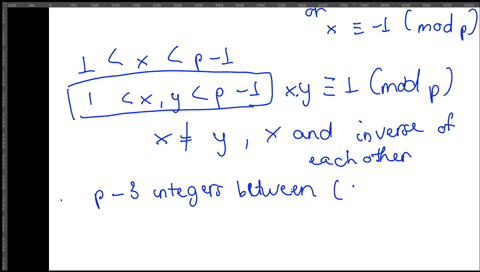 or
x ≡ -1 (mod p)
1 < x < p-1
1 < x, y < p-1 x.y ≡ 1 (mod p)
x ≠ y, x and inverse of
each other
. p-3 integers between (.